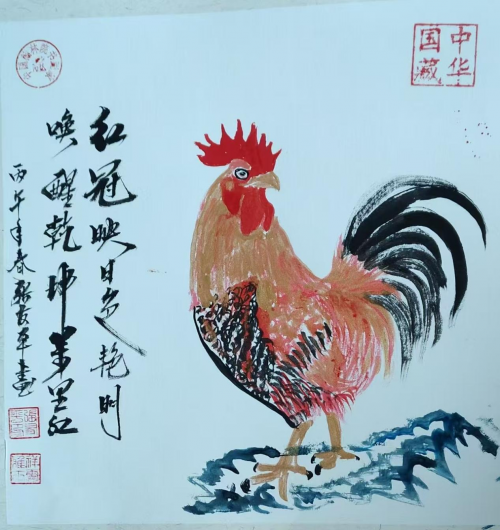 中华
国藏
红冠映日色艳明
唤醒乾坤萬里红
丙午年春